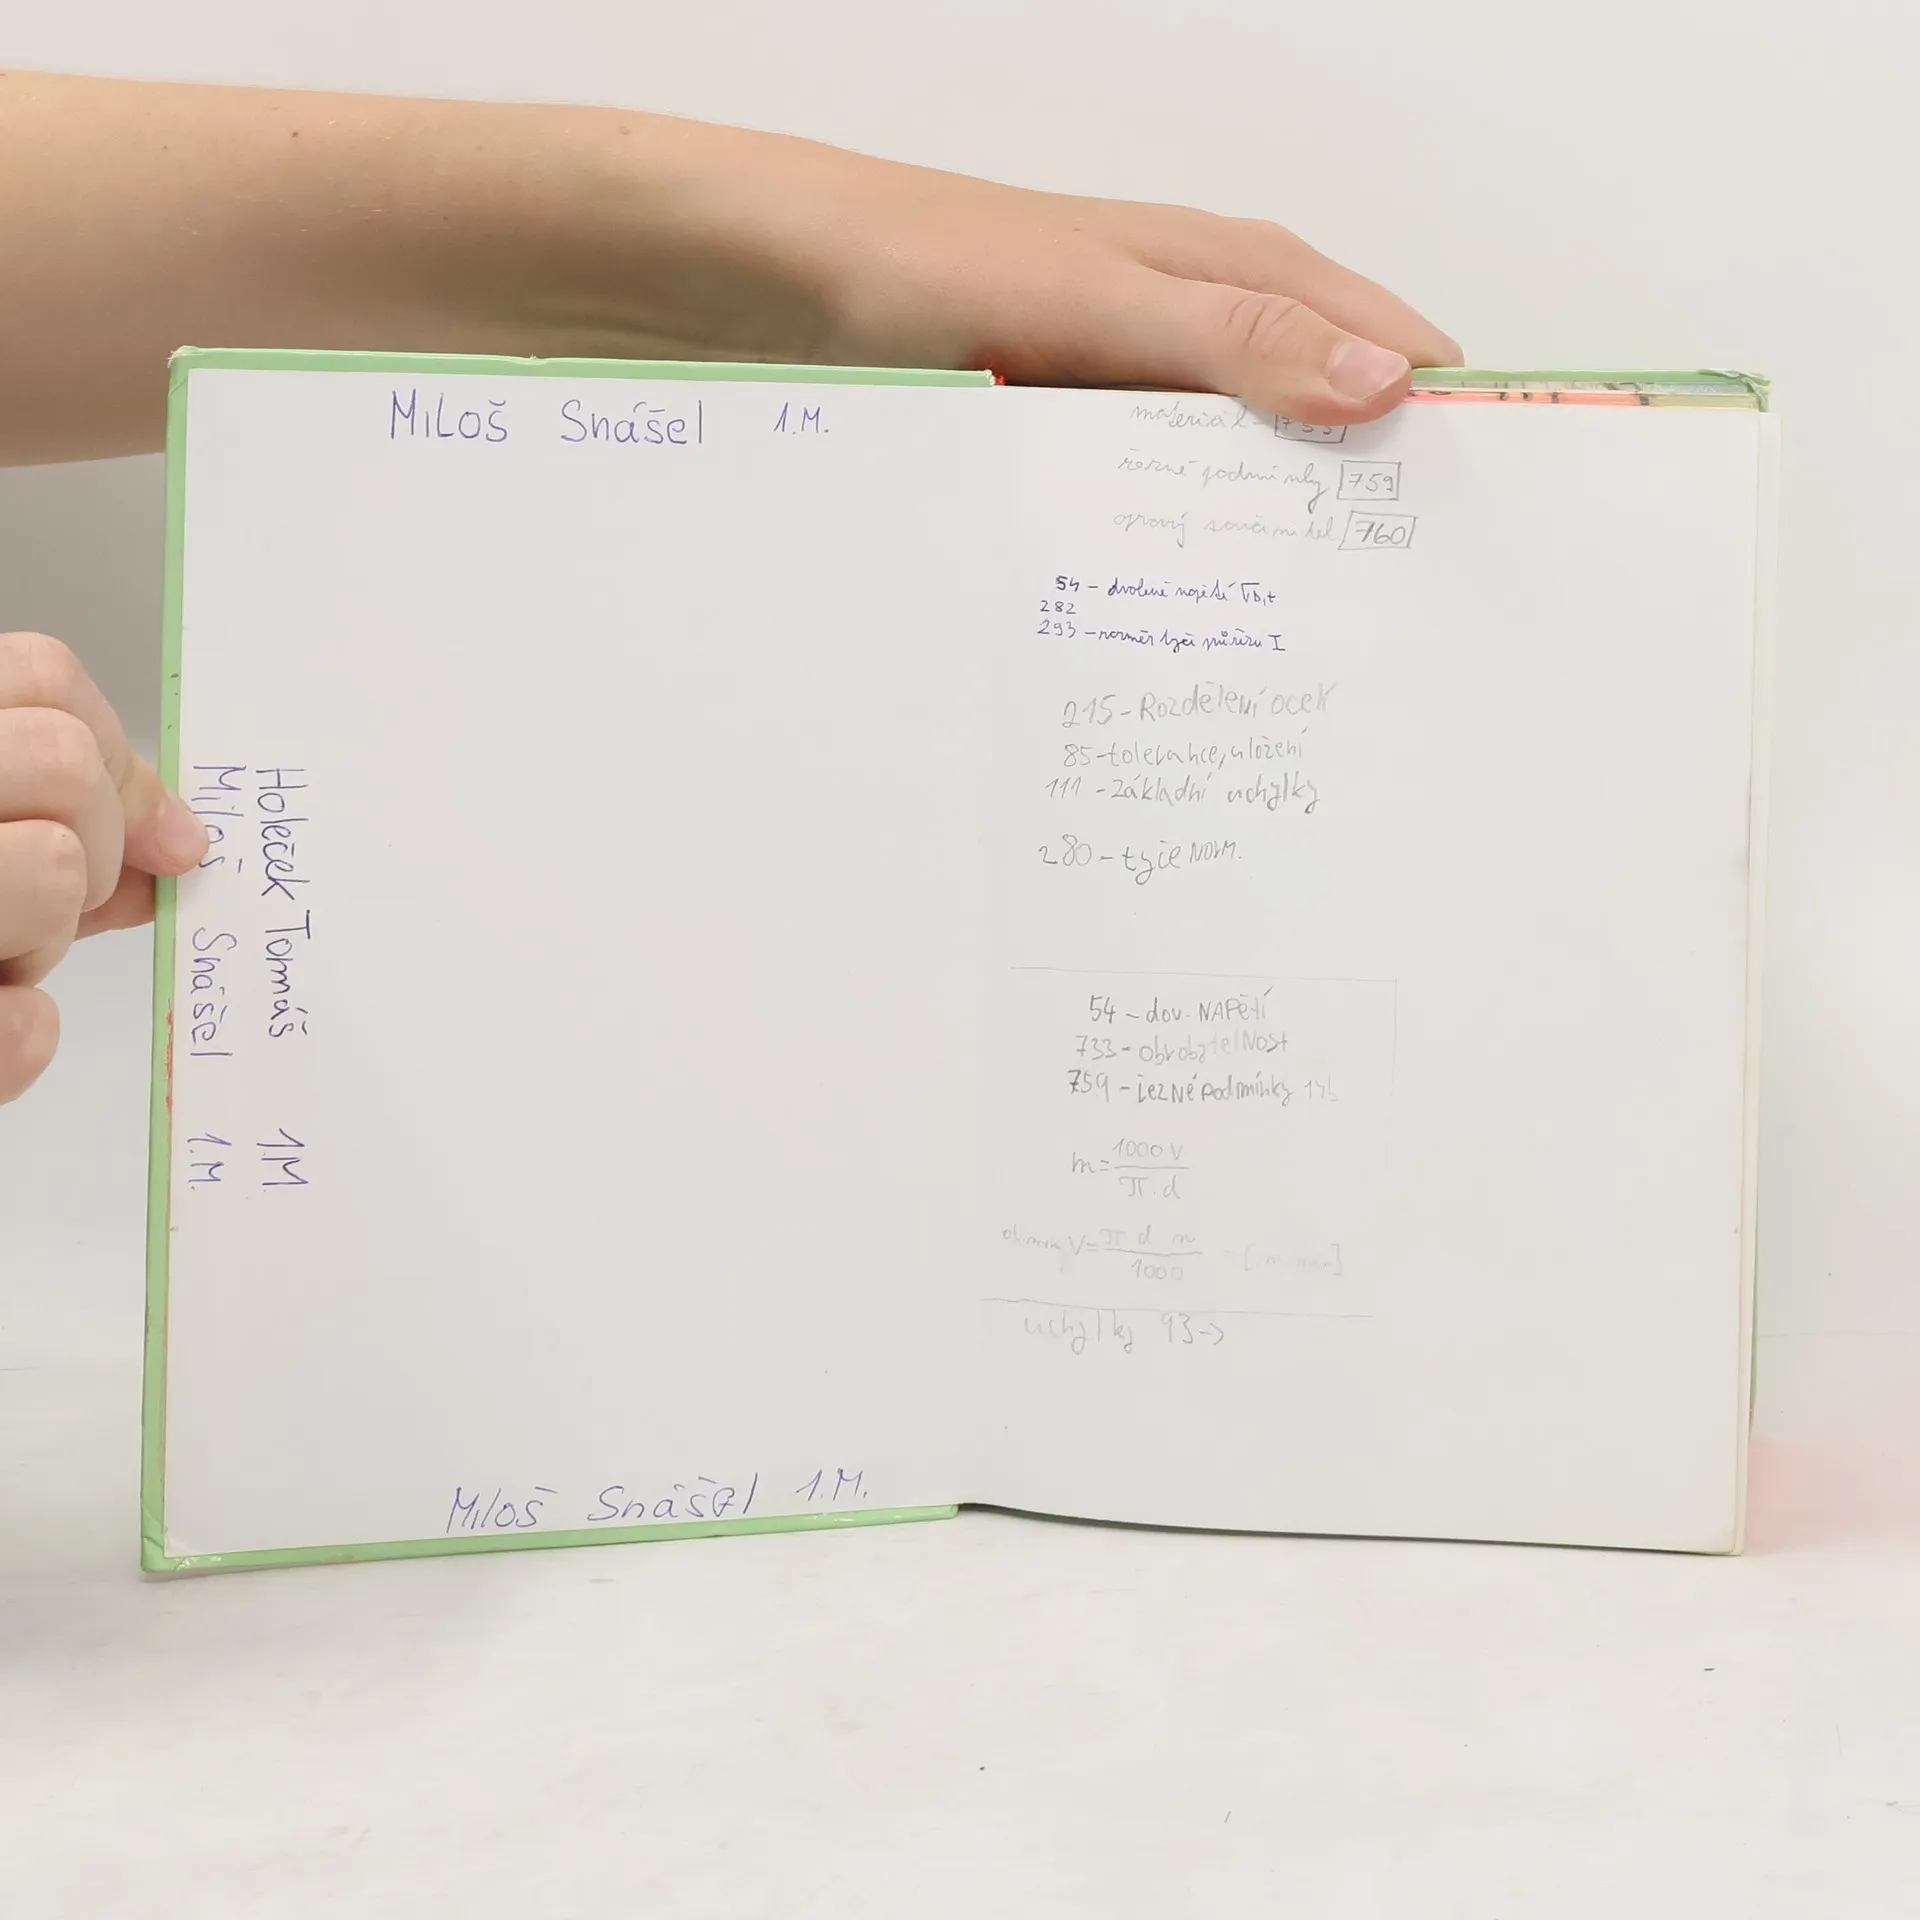 Miloš Snášel 1.M.
Holeček Tomáš 1M
Miloš Snášel 1.M.
Miloš Snášel 1.M.
materiál - 733
řezné podmínky 759
opravný součinitel 760
54 - dvolené napětí
282
293 - rozměr tyčí průřezu I
215 - Rozdělení ocelí
85 - tolerance, uložení
111 - Základní uchylky
280 - tyče NORM.
54 - dov. NAPětí
733 - obrobatelNost
759 - řezNé podmínky
n = 1000 v / π . d
V = π d n / 1000
uchylky 93 →